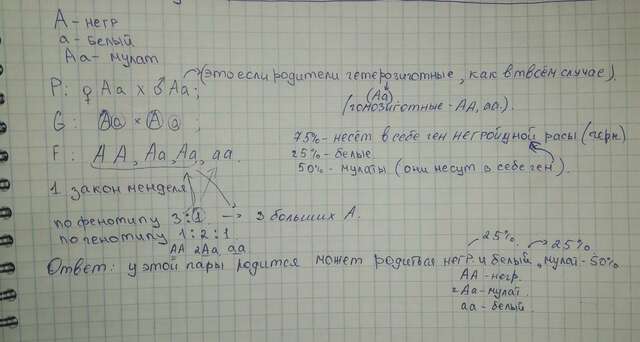 А - негр
а - белый
Аа - мулат
Р: ♀ Аа х ♂ Аа; (это если родители гетерозиготные, как в твоём случае).
(Аа)
(гомозиготные - АА, аа.)
G: Аа х Аа ;
75% - несёт в себе ген негройдной расы
F: АА, Аа, Аа, аа. 25% - белые
50% - мулаты (они несут в себе ген).
1 закон менделя
по фенотипу 3:1 → 3 больших А.
по генотипу 1:2:1
АА 2Аа аа
25% → 25%
Ответ: у этой пары родится может родиться негр и белый, мулат - 50%
АА - негр.
2Аа - мулат
аа - белый.